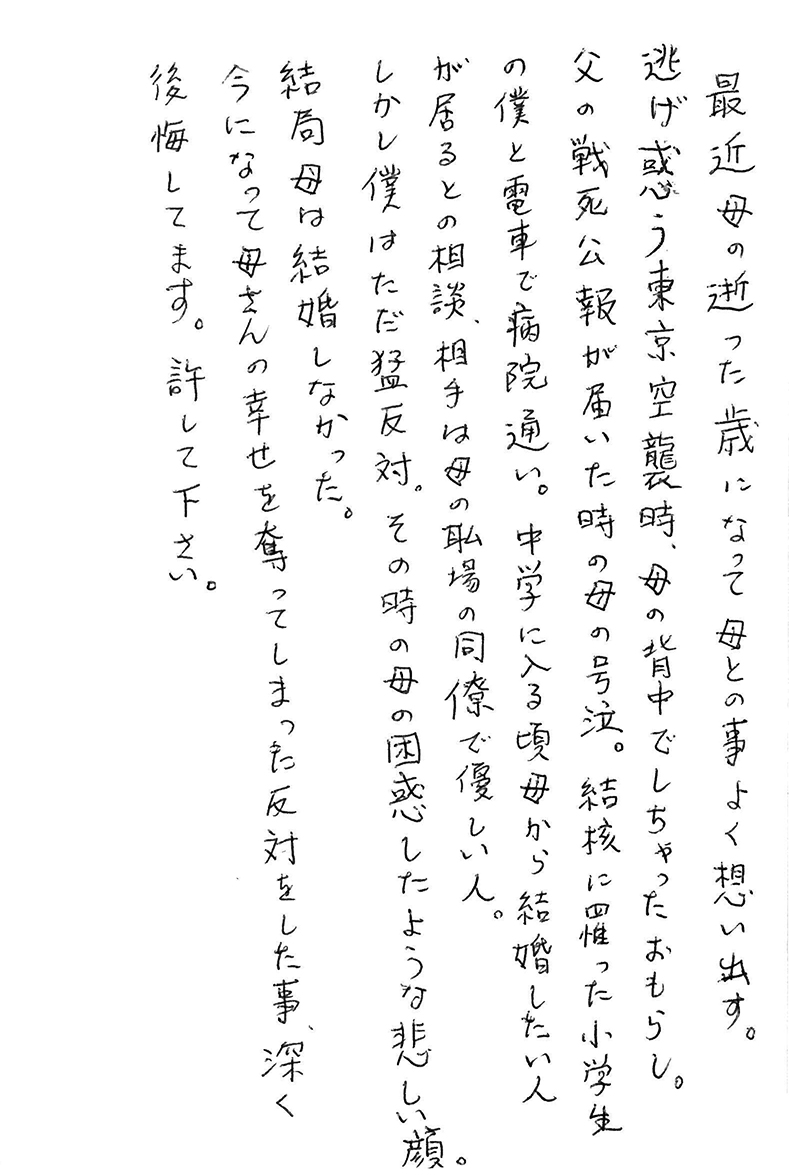 最近母の逝った歳になって母との事よく想い出す。
逃げ惑う東京空襲時、母の背中でしちゃったおもらし。
父の戦死公報が届いた時の母の号泣。結核に罹った小学生
の僕と電車で病院通い。中学に入る頃母から結婚したい人
が居るとの相談、相手は母の職場の同僚で優しい人。
しかし僕はただ猛反対。その時の母の困惑したような悲しい顔。
結局母は結婚しなかった。
今になって母さんの幸せを奪ってしまった反対をした事、深く
後悔してます。許して下さい。